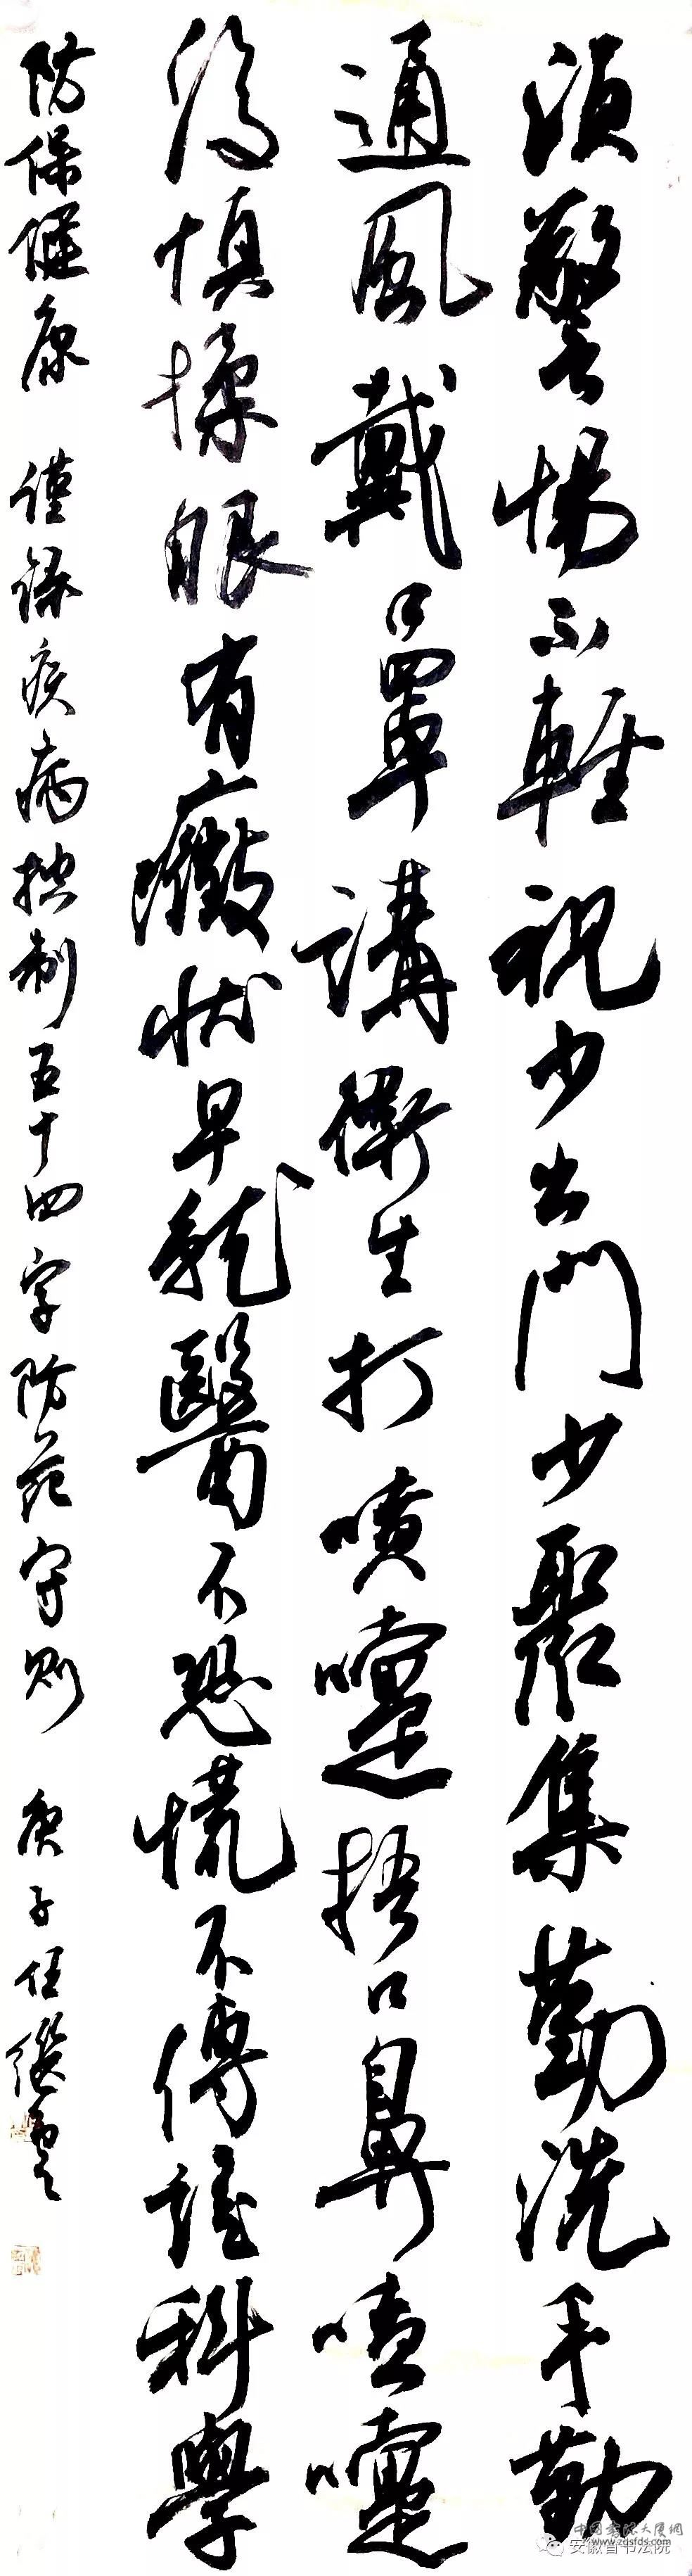 須警惕不輕視少出門少聚集勤洗手勤
通風戴口罩講衛生打噴嚏捂口鼻噴嚏
後慎揉眼有癥狀早就醫不恐慌不傳謠科學
防保健康 謹錄疾病控制五十四字防范守則 庚子任繼雲
中国书法大厦网
www.zgsfds.com
安徽省书法院